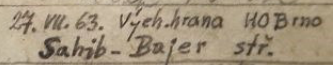 27. VII. 63. Vých. hrana HO Brno
Sahib - Bajer stř.